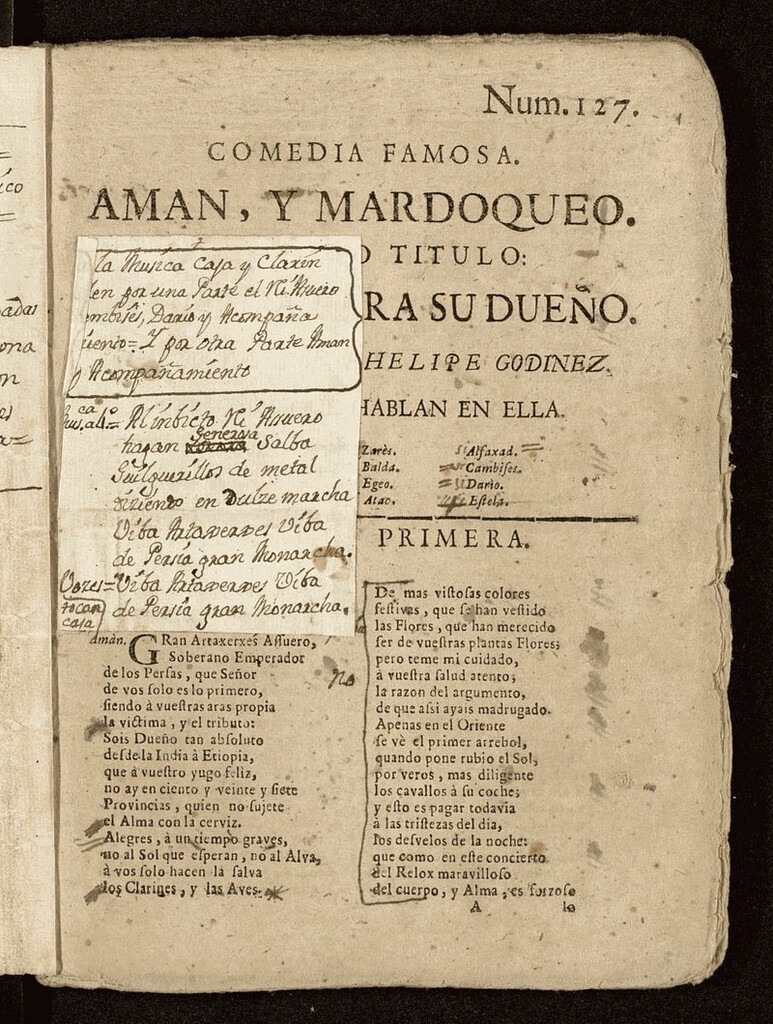 Num. 127.
COMEDIA FAMOSA.
AMAN, Y MARDOQUEO.
O TITULO:
RA SU DUEÑO.
HELIPE GODINEZ.
HABLAN EN ELLA.
Zarès.
Balda.
Egeo.
Atac.
Alfaxad.
Cambises.
Dario.
Estela.
la Musica Caja y Clarin
len por una Parte el Ri Asuero
ombises, Dario y Acompaña
uento= Y por otra Parte Aman
y Acompañamiento
Al inbicto Ri Asuero
hagan Generva Salba
Guilguerillos de metal
diziendo en Dulze marcha
Viba Artaxerxes Viba
de Persia gran Monarcha.
Vozes= Viba Artaxerxes Viba
tocan caja
de Persia gran Monarcha.
PRIMERA.
Amàn. GRan Artaxerxes Assuero,
Soberano Emperador
de los Persas, que Señor
de vos solo es lo primero,
siendo à vuestras aras propia
la victima, y el tributo:
Sois Dueño tan absoluto
desde la India à Etiopia,
que à vuestro yugo feliz,
no ay en ciento y veinte y siete
Provincias, quien no sujete
el Alma con la cerviz.
Alegres, à un tiempo graves,
no al Sol que esperan, no al Alva,
à vos solo hacen la salva
los Clarines, y las Aves.
no
De mas vistosas colores
festivas, que se han vestido
las Flores, que han merecido
ser de vuestras plantas Flores;
pero teme mi cuidado,
à vuestra salud atento;
la razon del argumento,
de que assi ayais madrugado.
Apenas en el Oriente
se vè el primer arrebol,
quando pone rubio el Sol,
por veros, mas diligente
los cavallos à su coche;
y esto es pagar todavia
à las tristezas del dia,
los desvelos de la noche:
que como en este concierto
del Relox maravilloso
del cuerpo, y Alma, es forzoso
A lo